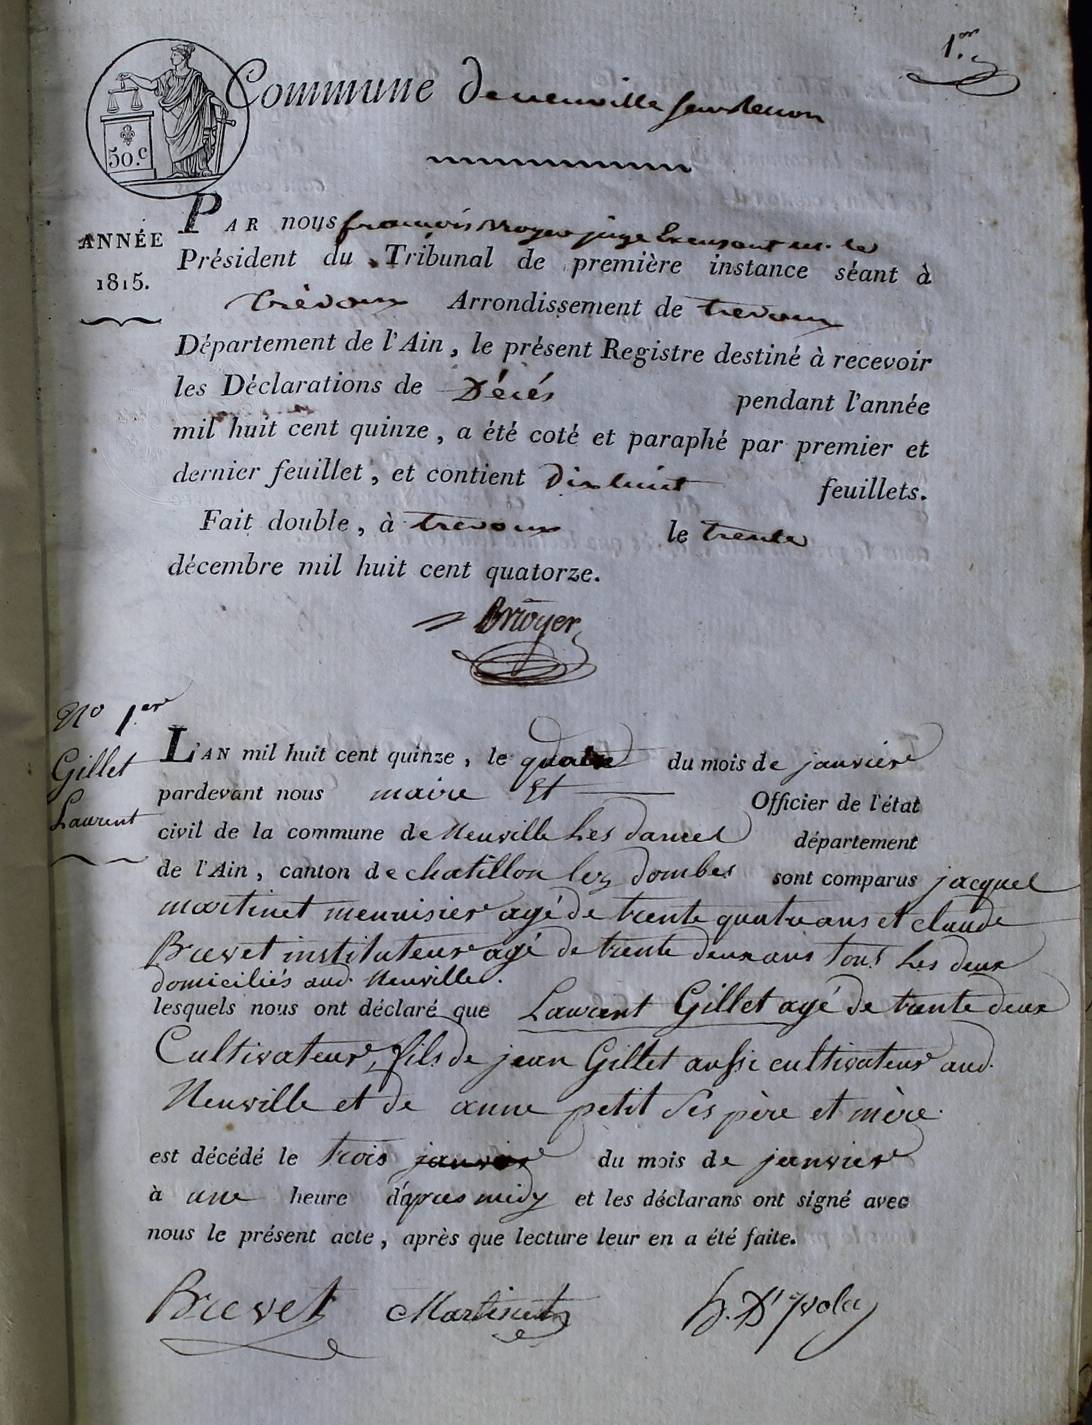 1.er
Commune de neuville sur Renon
50.c
ANNÉE
1815.
PAR nous françois Broyer juge Exerçant
Président du Tribunal de première instance séant à
trévoux Arrondissement de trevoux
Département de l'Ain, le présent Registre destiné à recevoir
les Déclarations de Décés pendant l'année
mil huit cent quinze, a été coté et paraphé par premier et
dernier feuillet, et contient dix huit feuillets.
Fait double, à trevoux le trente
décembre mil huit cent quatorze.
Broyer
No 1.ere
Gillet
Laurent
L'AN mil huit cent quinze, le quatre du mois de janvier
pardevant nous maire Et Officier de l'état
civil de la commune de Neuville Les dames département
de l'Ain, canton de chatillon les dombes sont comparus jacques
martinet menuisier agé de trente quatre ans et claude
Brevet instituteur agé de trente deux ans tous Les deux
domiciliés aud. Neuville.
lesquels nous ont déclaré que Laurent Gillet agé de trente deux
Cultivateur, fils de jean Gillet aussi cultivateur aud.
Neuville et de anne petit Ses père et mère.
est décédé le trois janvier du mois de janvier
à une heure d'après midy et les déclarans ont signé avec
nous le présent acte, après que lecture leur en a été faite.
Brevet Martinet